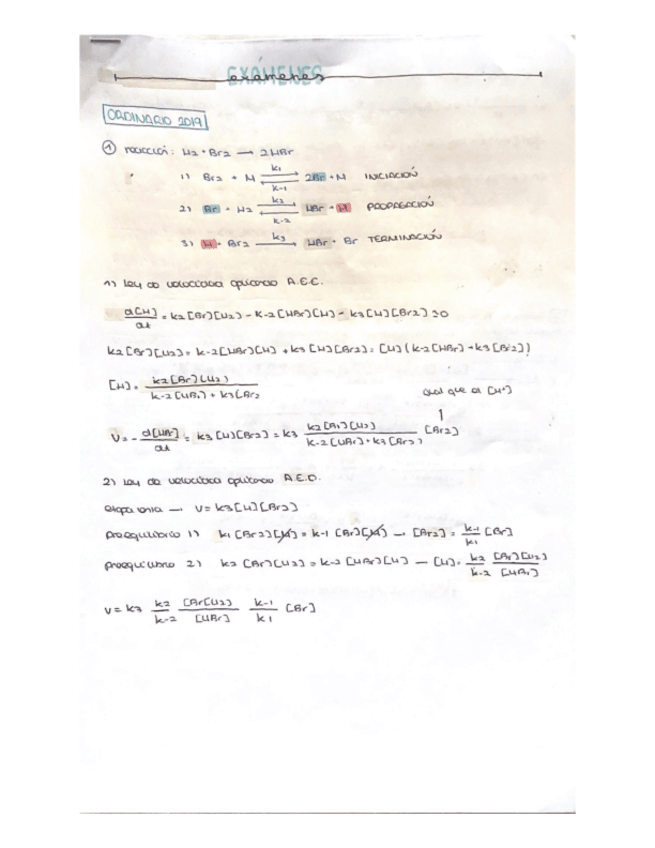 EXÁMENES
exámenes
ORDINARIO 2019
① reacción: H2 + Br2 → 2HBr
1) Br2 + M ⇌ 2Br + M INICIACIÓN
k1
k-1
2) Br + H2 ⇌ HBr + H PROPAGACIÓN
k2
k-2
3) H + Br2 → HBr + Br TERMINACIÓN
k3
1) Ley de velocidad aplicando A.E.E.
d[H]/dt = k2[Br][H2] - k-2[HBr][H] - k3[H][Br2] = 0
k2[Br][H2] = k-2[HBr][H] + k3[H][Br2] = [H](k-2[HBr] + k3[Br2])
[H] = k2[Br][H2] / k-2[HBr] + k3[Br2
igual que el [H]
V = - d[HBr]/dt = k3[H][Br2] = k3 k2[Br][H2] / k-2[HBr] + k3[Br2] [Br2]
2) Ley de velocidad aplicando A.E.D.
etapa lenta → V = k3[H][Br2]
Preequilibrio 1) k1[Br2][M] = k-1[Br][M] → [Br2] = k-1/k1 [Br]
preequilibrio 2) k2[Br][H2] = k-2[HBr][H] → [H] = k2/k-2 [Br][H2]/[HBr]
V = k3 k2/k-2 [Br[H2]/[HBr] k-1/k1 [Br]